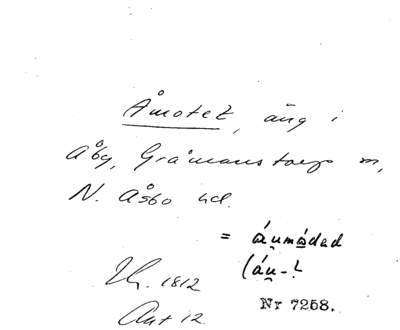 Åmotet, äng i
Åby, Gråmanstorps
N. Åsbo hd.
= áu̯mādad
(áu̯-?
1812
Akt 12.
Nr 7258.